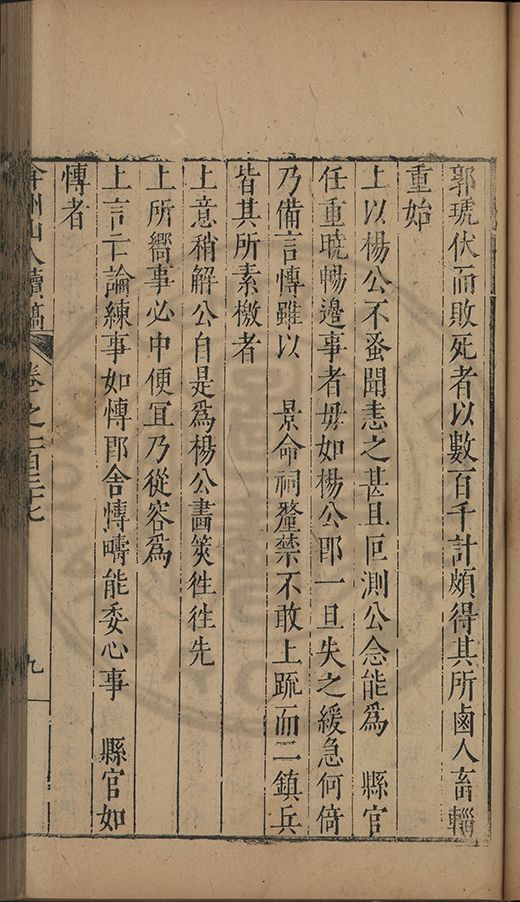 郭琥伏而敗死者以數百千計頗得其所鹵人畜輜
重始
上以楊公不蚤聞恚之甚且叵測公念能爲　縣官
任重曉暢邊事者毋如楊公郎一旦失之緩急何倚
乃備言愽雖以　景命祠釐禁不敢上疏而二鎮兵
皆其所素檄者
上意稍解公自是爲楊公畫筴徃徃先
上所嚮事必中便宜乃從容爲
上言亡論練事如愽郎舍愽疇能委心事　縣官如
愽者
弇州山人續稿　卷之一百三十七　九